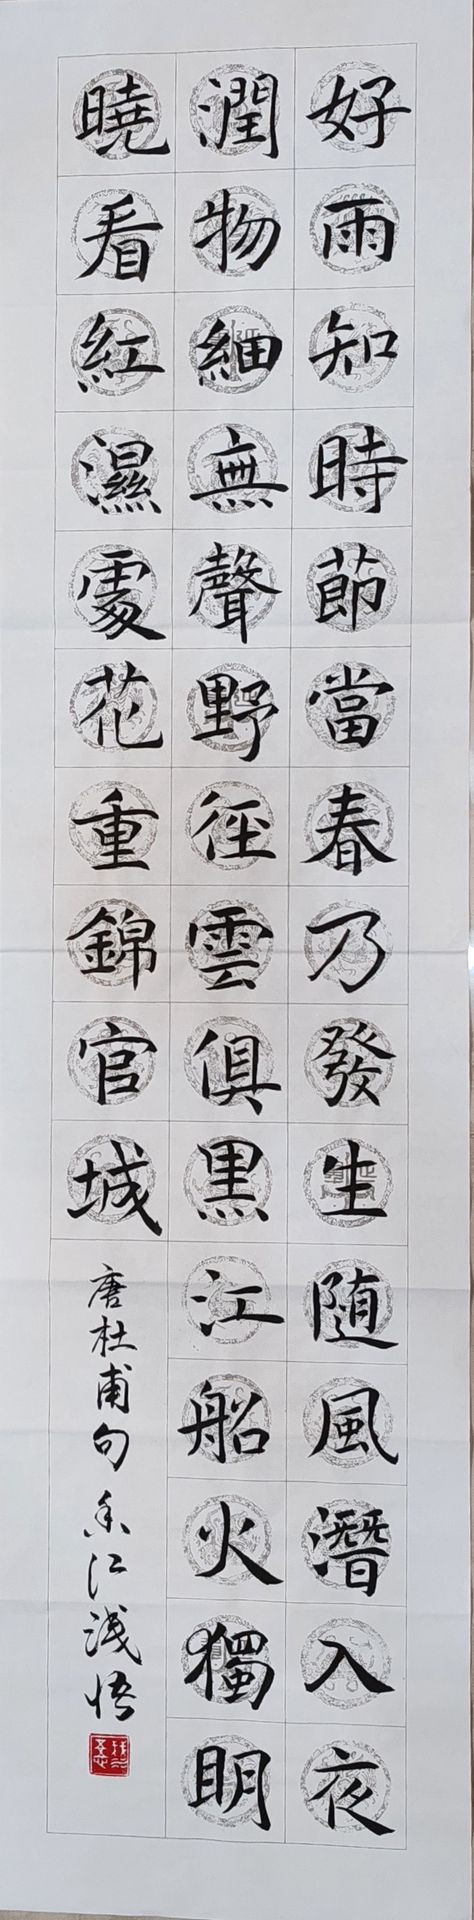 好雨知時節當春乃發生随風潛入夜
潤物細無聲野徑雲俱黑江船火獨明
曉看紅濕處花重錦官城
唐杜甫句香江淺悟